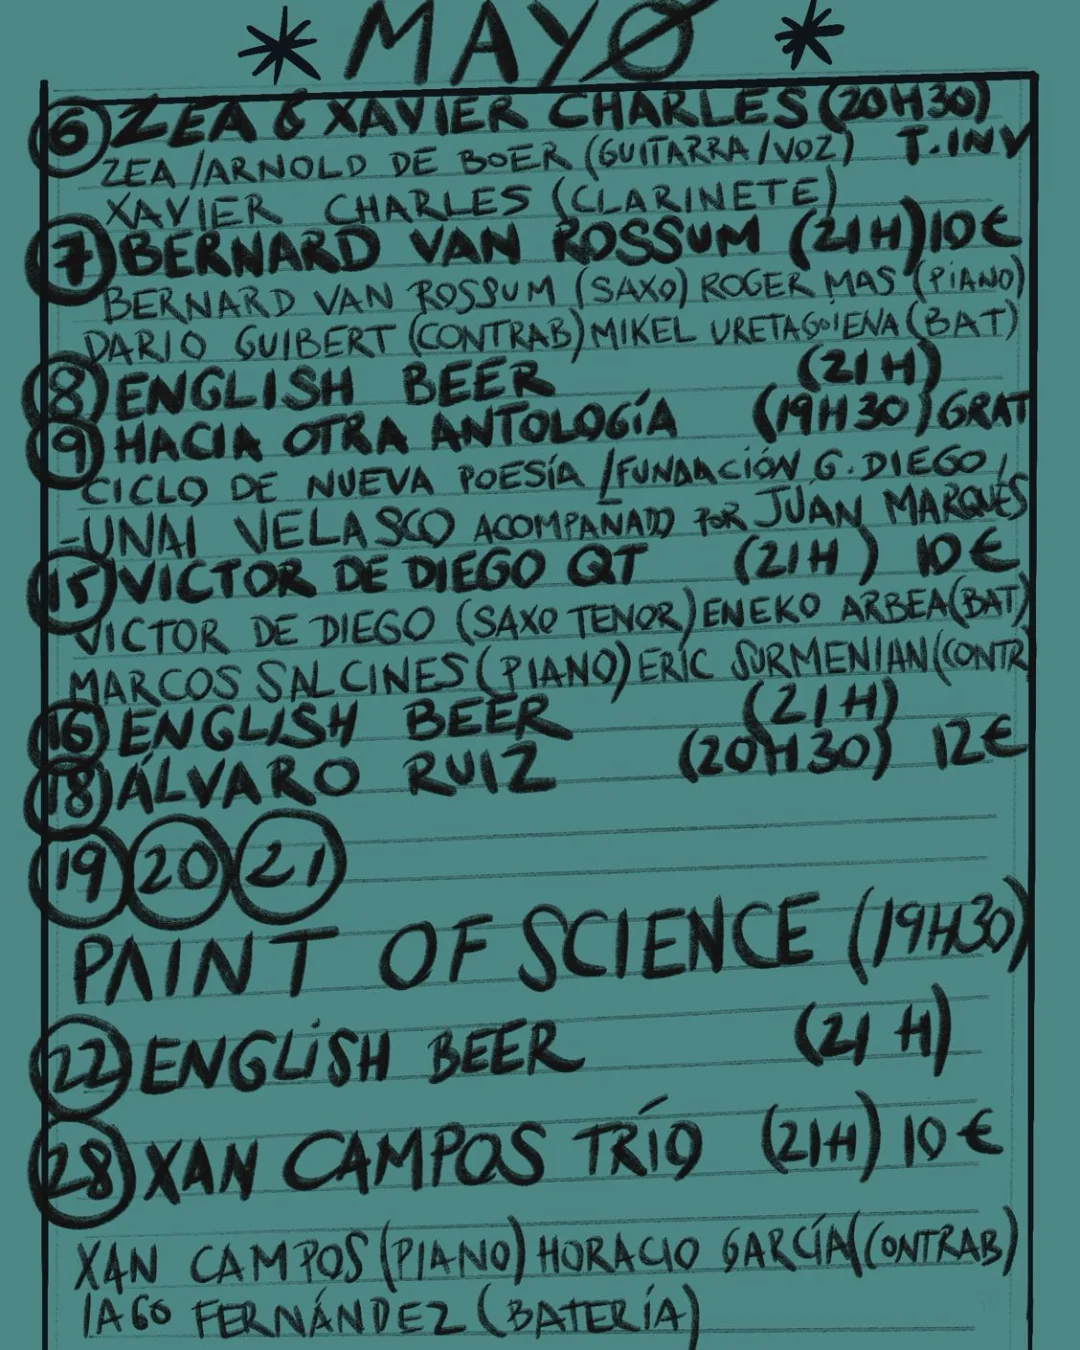 * MAYO *
6 ZEA & XAVIER CHARLES (20H30)
ZEA/ARNOLD DE BOER (GUITARRA/VOZ) T.INV
XAVIER CHARLES (CLARINETE)
7 BERNARD VAN ROSSUM (21H) 10€
BERNARD VAN ROSSUM (SAXO) ROGER MAS (PIANO)
DARIO GUIBERT (CONTRAB) MIKEL URETAGOIENA (BAT)
8 ENGLISH BEER (21H)
9 HACIA OTRA ANTOLOGÍA (19H30) GRAT
CICLO DE NUEVA POESÍA /FUNDACIÓN G. DIEGO
-UNAI VELASCO ACOMPAÑADO POR JUAN MARQUÉS
15 VICTOR DE DIEGO QT (21H) 10€
VICTOR DE DIEGO (SAXO TENOR) ENEKO ARBEA (BAT)
MARCOS SALCINES (PIANO) ERIC SURMENIAN (CONTR
16 ENGLISH BEER (21H)
18 ÁLVARO RUIZ (20H30) 12€
19 20 21
PAINT OF SCIENCE (19H30)
22 ENGLISH BEER (21 H)
28 XAN CAMPOS TRÍO (21H) 10€
XAN CAMPOS (PIANO) HORACIO GARCÍA (CONTRAB)
IAGO FERNÁNDEZ (BATERÍA)